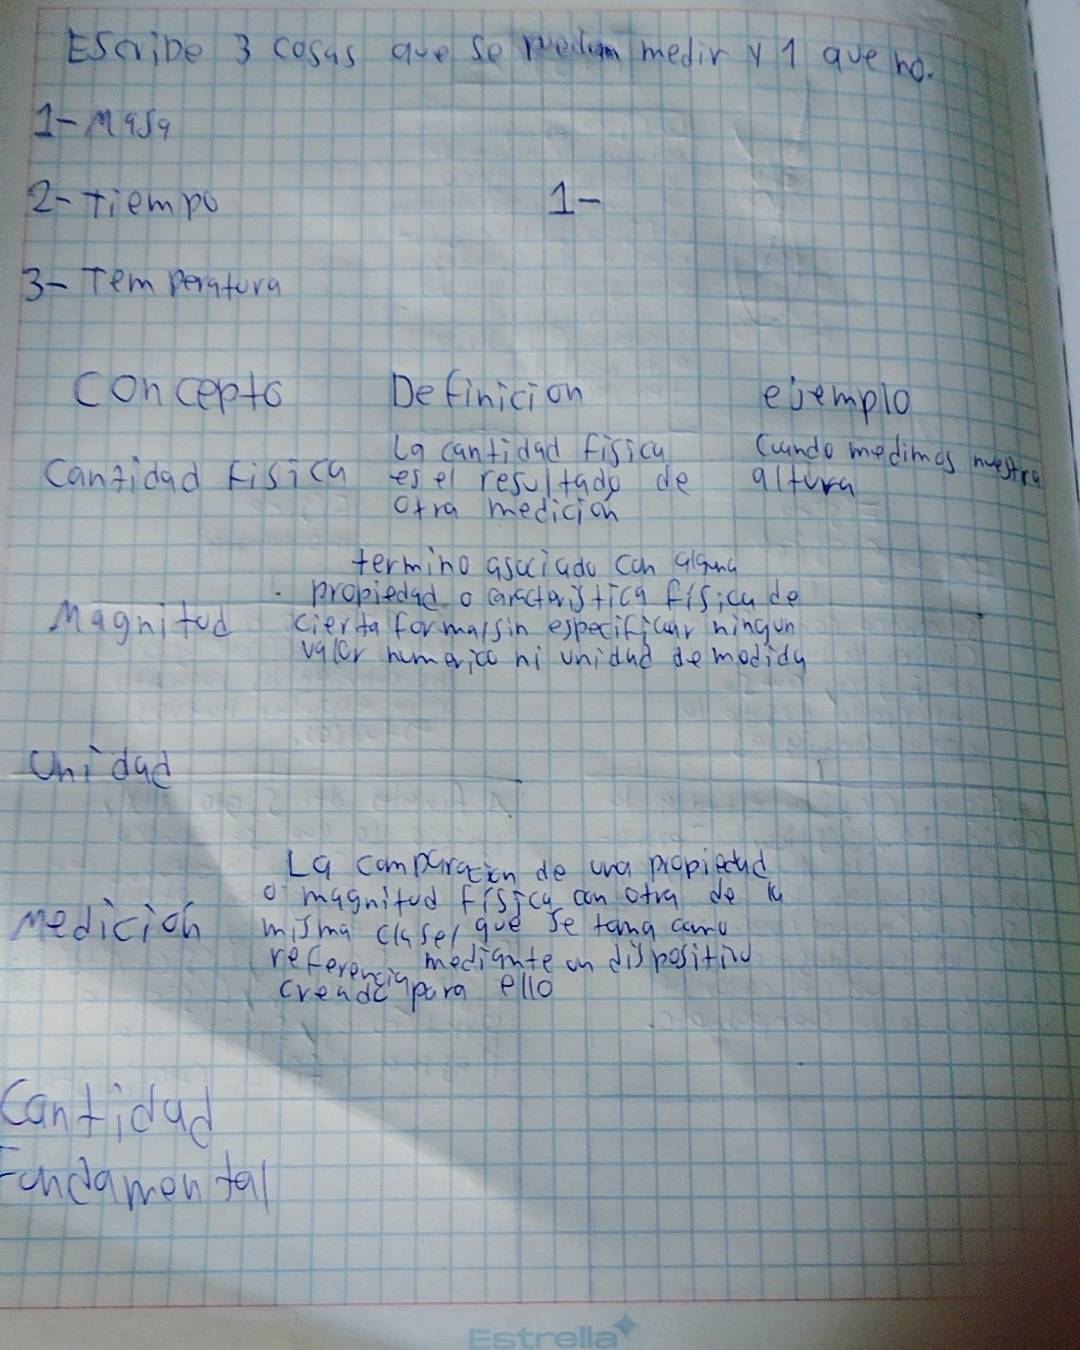 Escribe 3 cosas que se pueden medir y 1 que no.
1- Masa
2- Tiempo
1-
3- Temperatura
Concepto Definicion ejemplo
Cantidad Fisica
La cantidad fisica
es el resultado de
otra medición
Cuando medimos nuestra
altura
Magnitud
termino asociado con alguna
propiedad o caracteristica física de
cierta forma sin especificar ningun
valor numerico ni unidad de medida
Unidad
Medición
La comparacion de una propiedad
o magnitud física con otra de la
misma clase, que se toma como
referencia mediante un dispositivo
creado para ello
Cantidad
Fundamental
Estrella